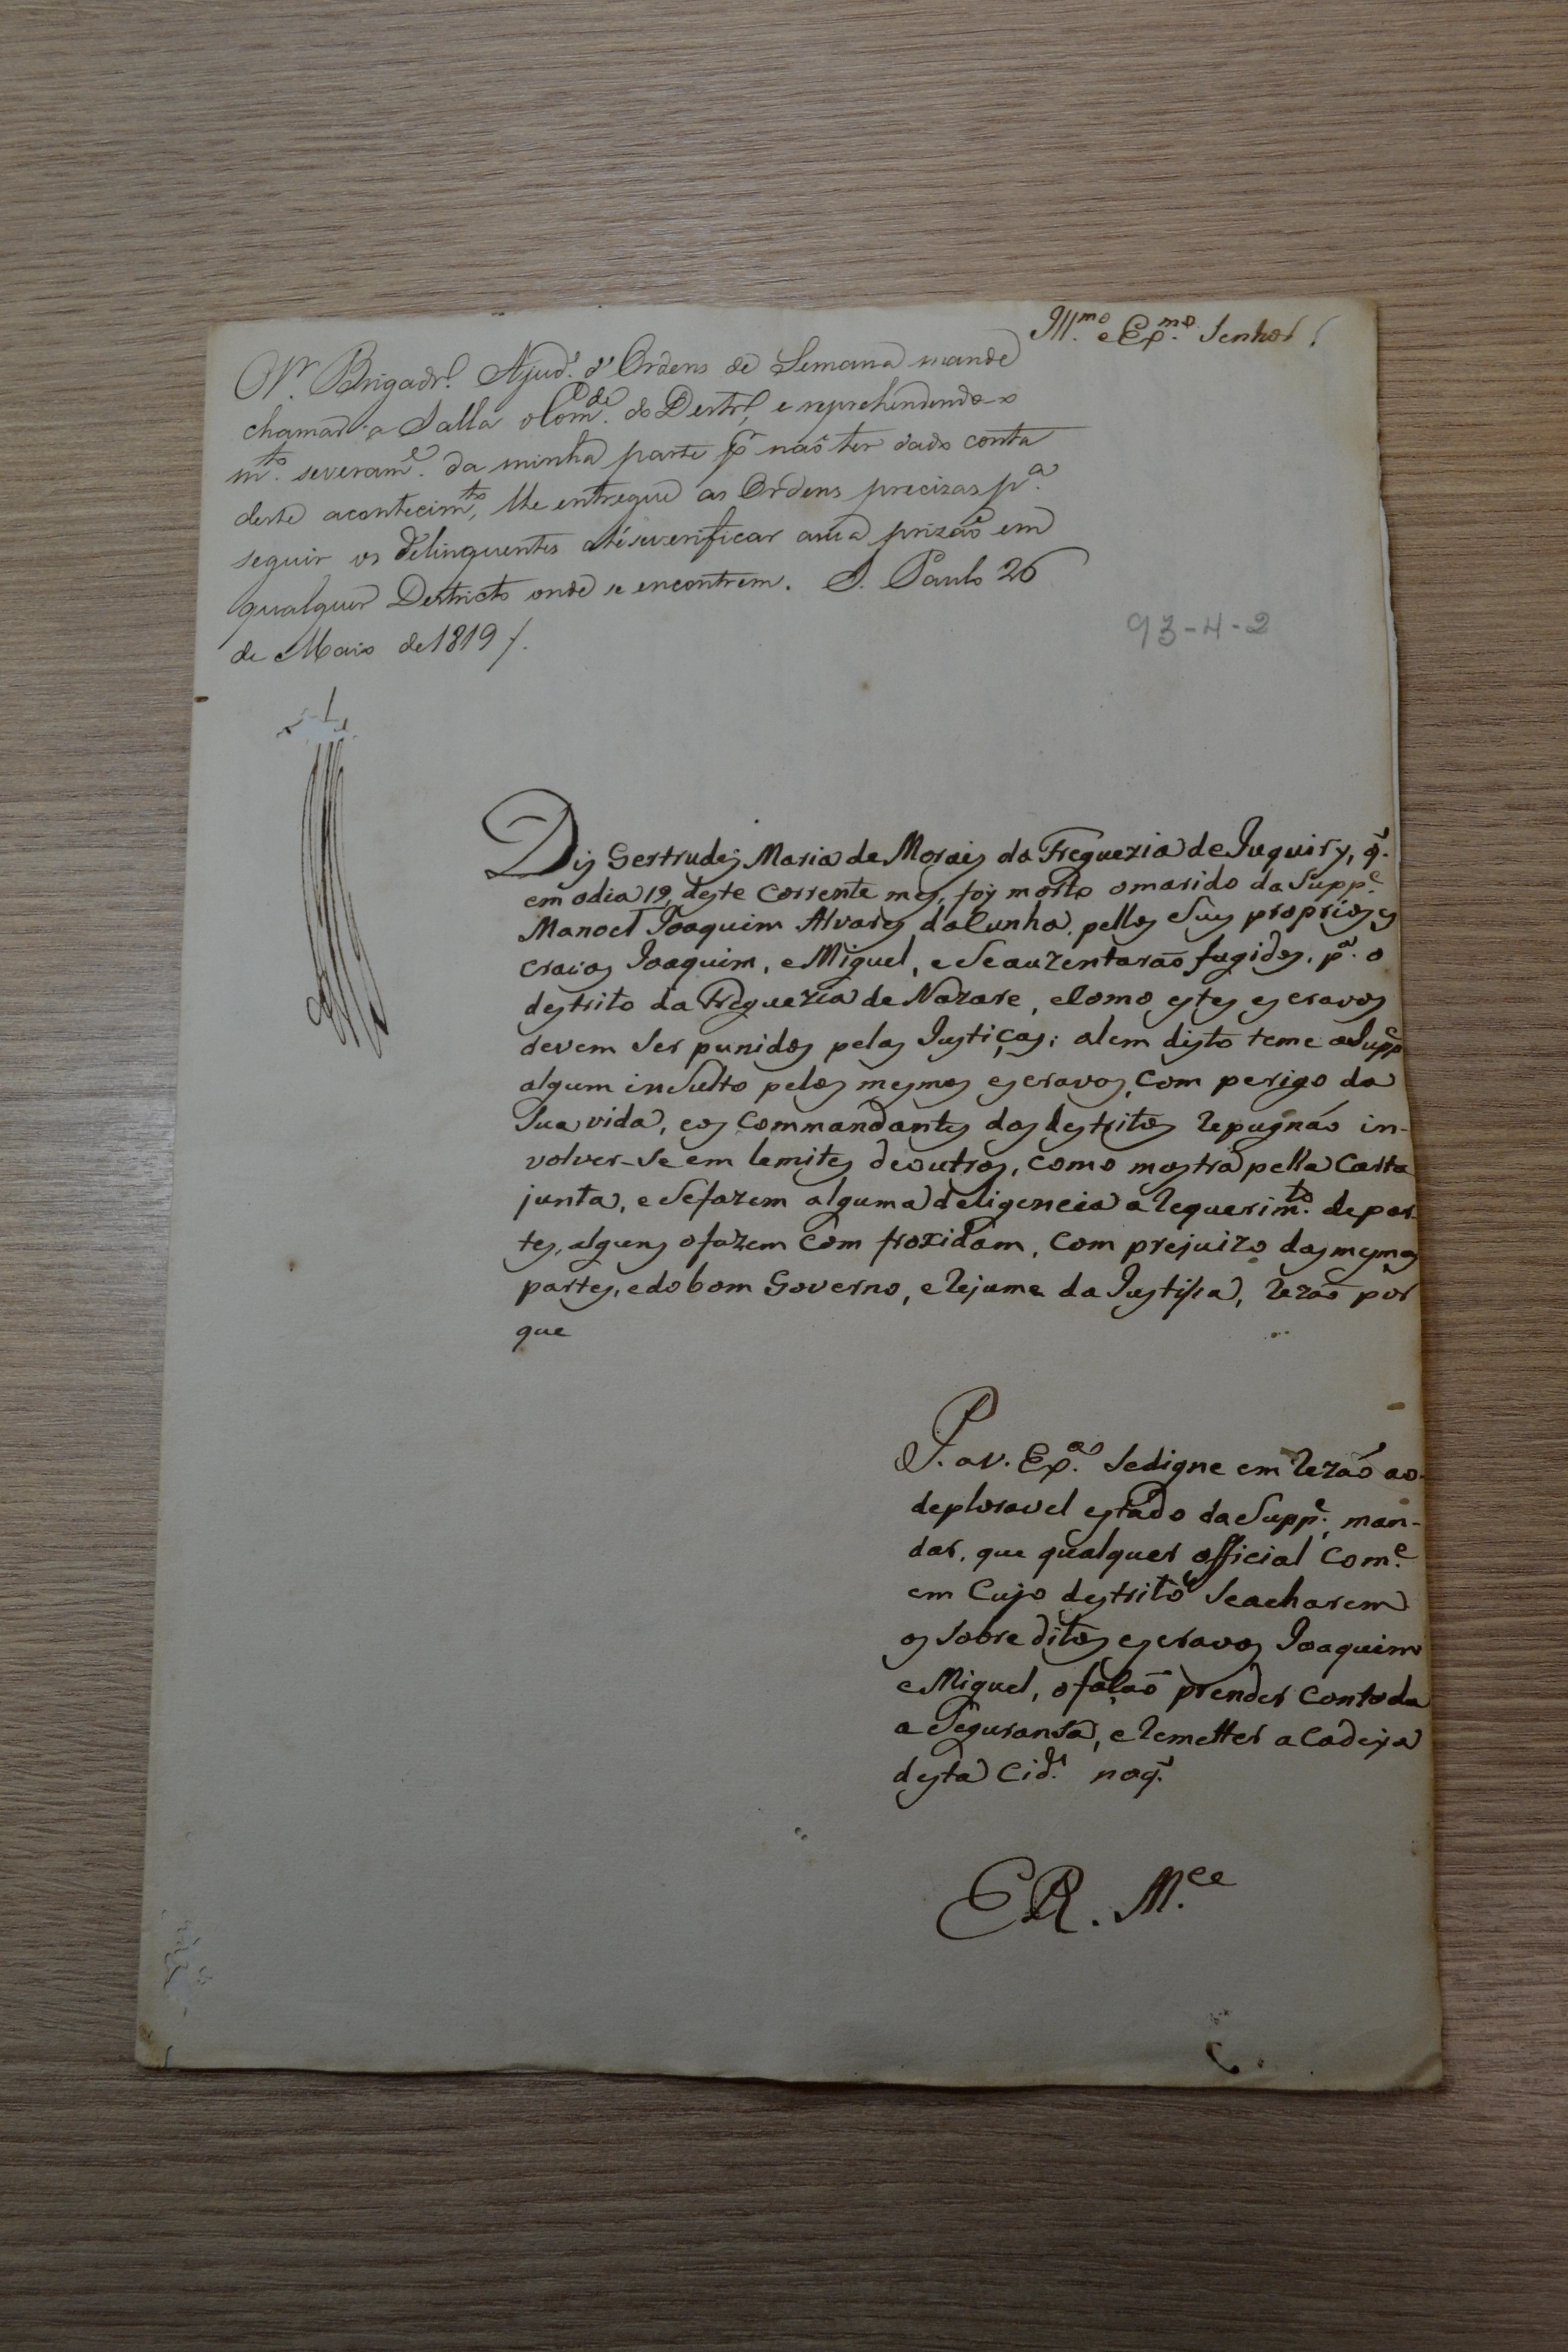 Ill.mo e Ex.mo Senhor!
O Sr. Brigadr.o Ajud.e d'Ordens de Semana mande
chamar a Salla o Com.de do Destr.o, e reprehendendo-o
m.to severam.e da minha parte p.r naõ ter dado conta
deste acontecim.to, lhe entregue as Ordens precizas p.a
seguir os delinquentes até se verificar a sua prizaõ em
qualquer Destricto onde se encontrem. S. Paulo 26
de Maio de 1819 /.
93-4-2
Dis Gertrudes Maria de Morais da Freguezia de Juquiry, q.
em o dia 19, deste Corrente mes, foy morto o marido da Supp.e
Manoel Joaquim Alvares da Cunha, pellos Suos proprios es
cravos Joaquim, e Miguel, e Se auzentaraõ fugidos, p.a o
destrito da Freguezia de Nazare, e Como estes escravos
devem Ser punidos pelas Justiças; alem disto teme a Supp.e
algum inSulto pelos mesmos escravos, Com perigo da
Sua vida, e os Commandantes dos destritos Repugnáo in-
volver-Se em lemites de outros, Como mostra pella Carta
junta, e Se fazem alguma deligencia a Requerim.to de par-
tes, alguns o fazem Com froxidam, Com prejuizo das mesmas
partes, e do bom Governo, e Rejume da Justissa, Rezaõ por
que
P. a V. Ex.a Se digne em Rezaõ ao
deploravel estado da Supp.e, man-
dar, que qualquer official Com.e
em Cujo destrito Se acharem
os Sobreditos escravos Joaquim
e Miguel, o façaõ prender Con toda
a Seguransa, e Remetter a Cadeya
desta Cid.e no q.
E R. M.ce